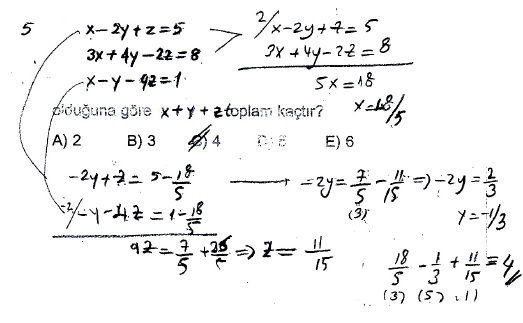 5
x-2y+z=5
3x+4y-2z=8
x-y-4z=1
2/x-2y+z=5
3x+4y-2z=8
5x=18
x=18/5
olduğuna göre x+y+z toplam kaçtır?
A) 2 B) 3 C) 4 D) 5 E) 6
-2y+z=5-18/5
-2/-y-4z=1-18/5
9z=7/5+26/5 => z=11/15
-2y=7/5-11/15 => -2y=2/3
(3)
y=-1/3
18/5-1/3+11/15=4
(3) (5) (1)